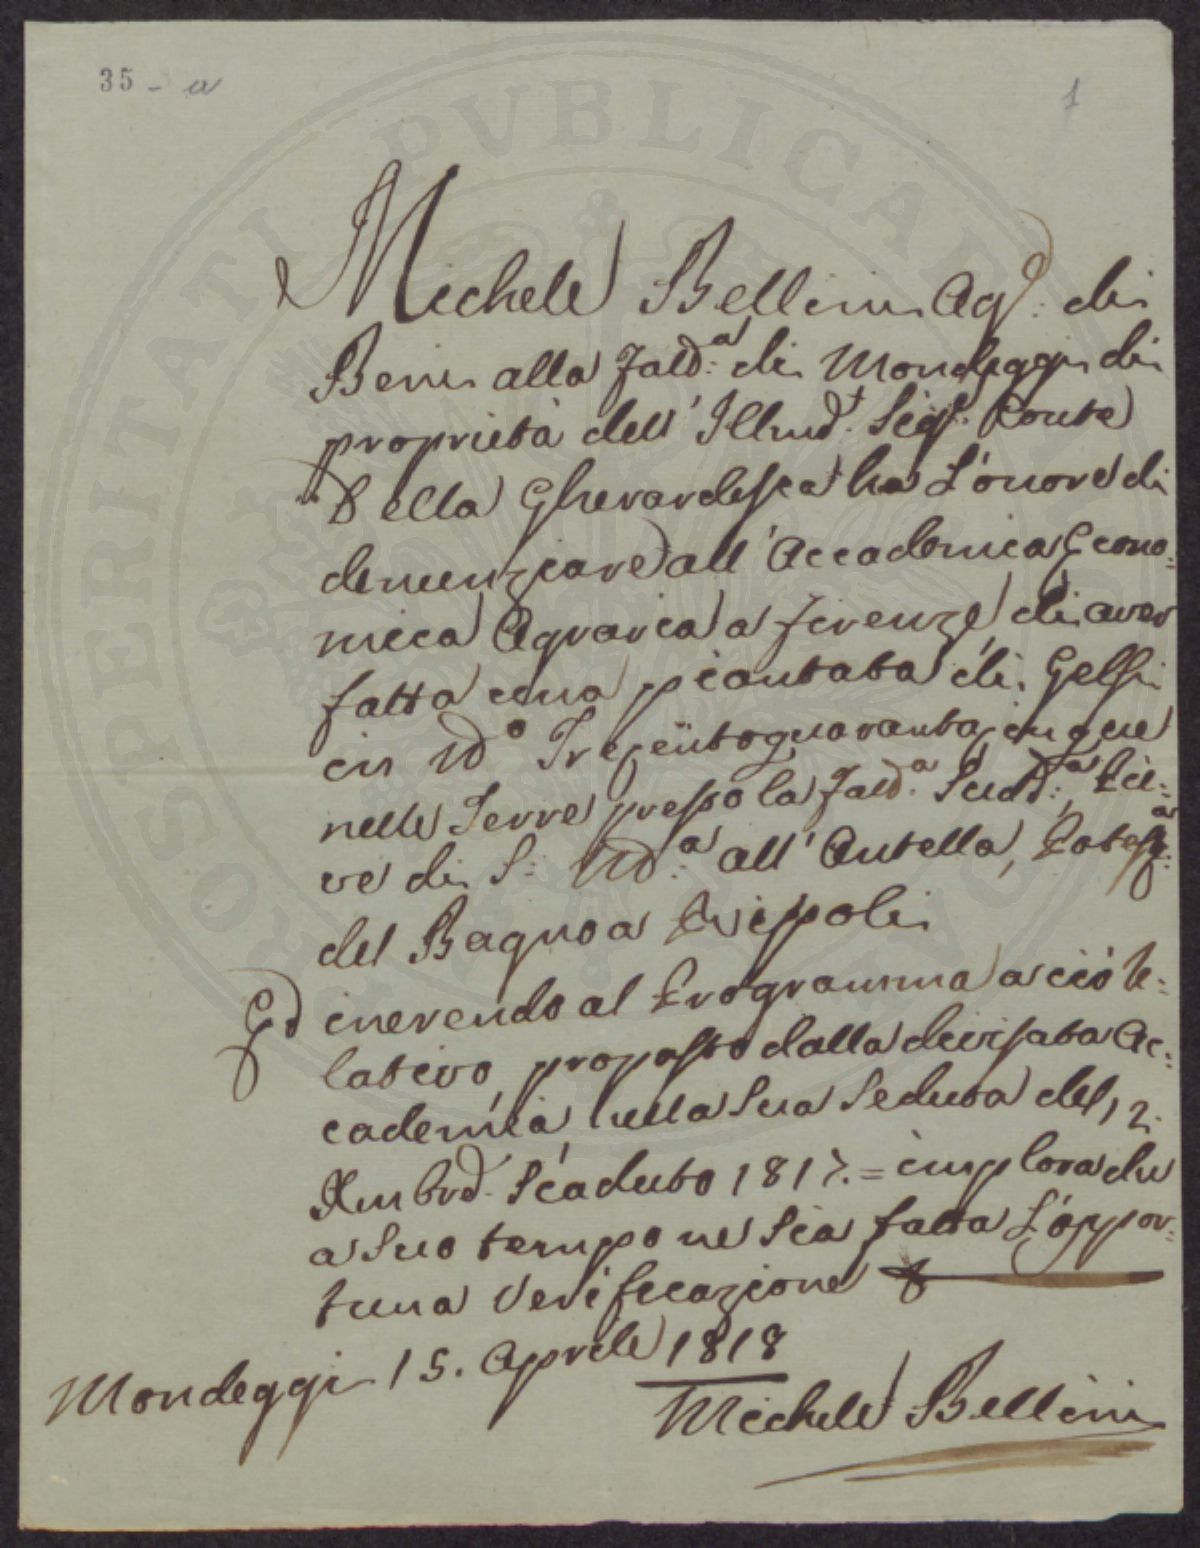 35 - a
1
Michele Bellini Ag:e di
Beni alla Fatt:a di Mondeggi di
proprietà dell' Illmo: Sigr: Conte
Della Gherardesca ha L'onore di
denunziare all' Accademia Econo=
mica Agraria a Firenze, di aver
fatta una piantata di Gelsi
in No Trecentoquarantacinque
nelle Terre presso la Fatt:a Sudd:a, Pie=
ve di S: Ma: all' Antella, Potest:a
del Bagno a Ripoli
Ed inerendo al Programma a ciò re=
lativo, proposto dalla divisata Ac=
cademia, nella Sua Seduta del, 2.
Xmbre Scaduto 1817. = implora che
a Suo tempo ne Sia fatta L'oppor=
tuna Verificazione
Mondeggi 15. Aprile 1818
Michele Bellini
PROSPERITATI PVBLICAE AVGENDAE